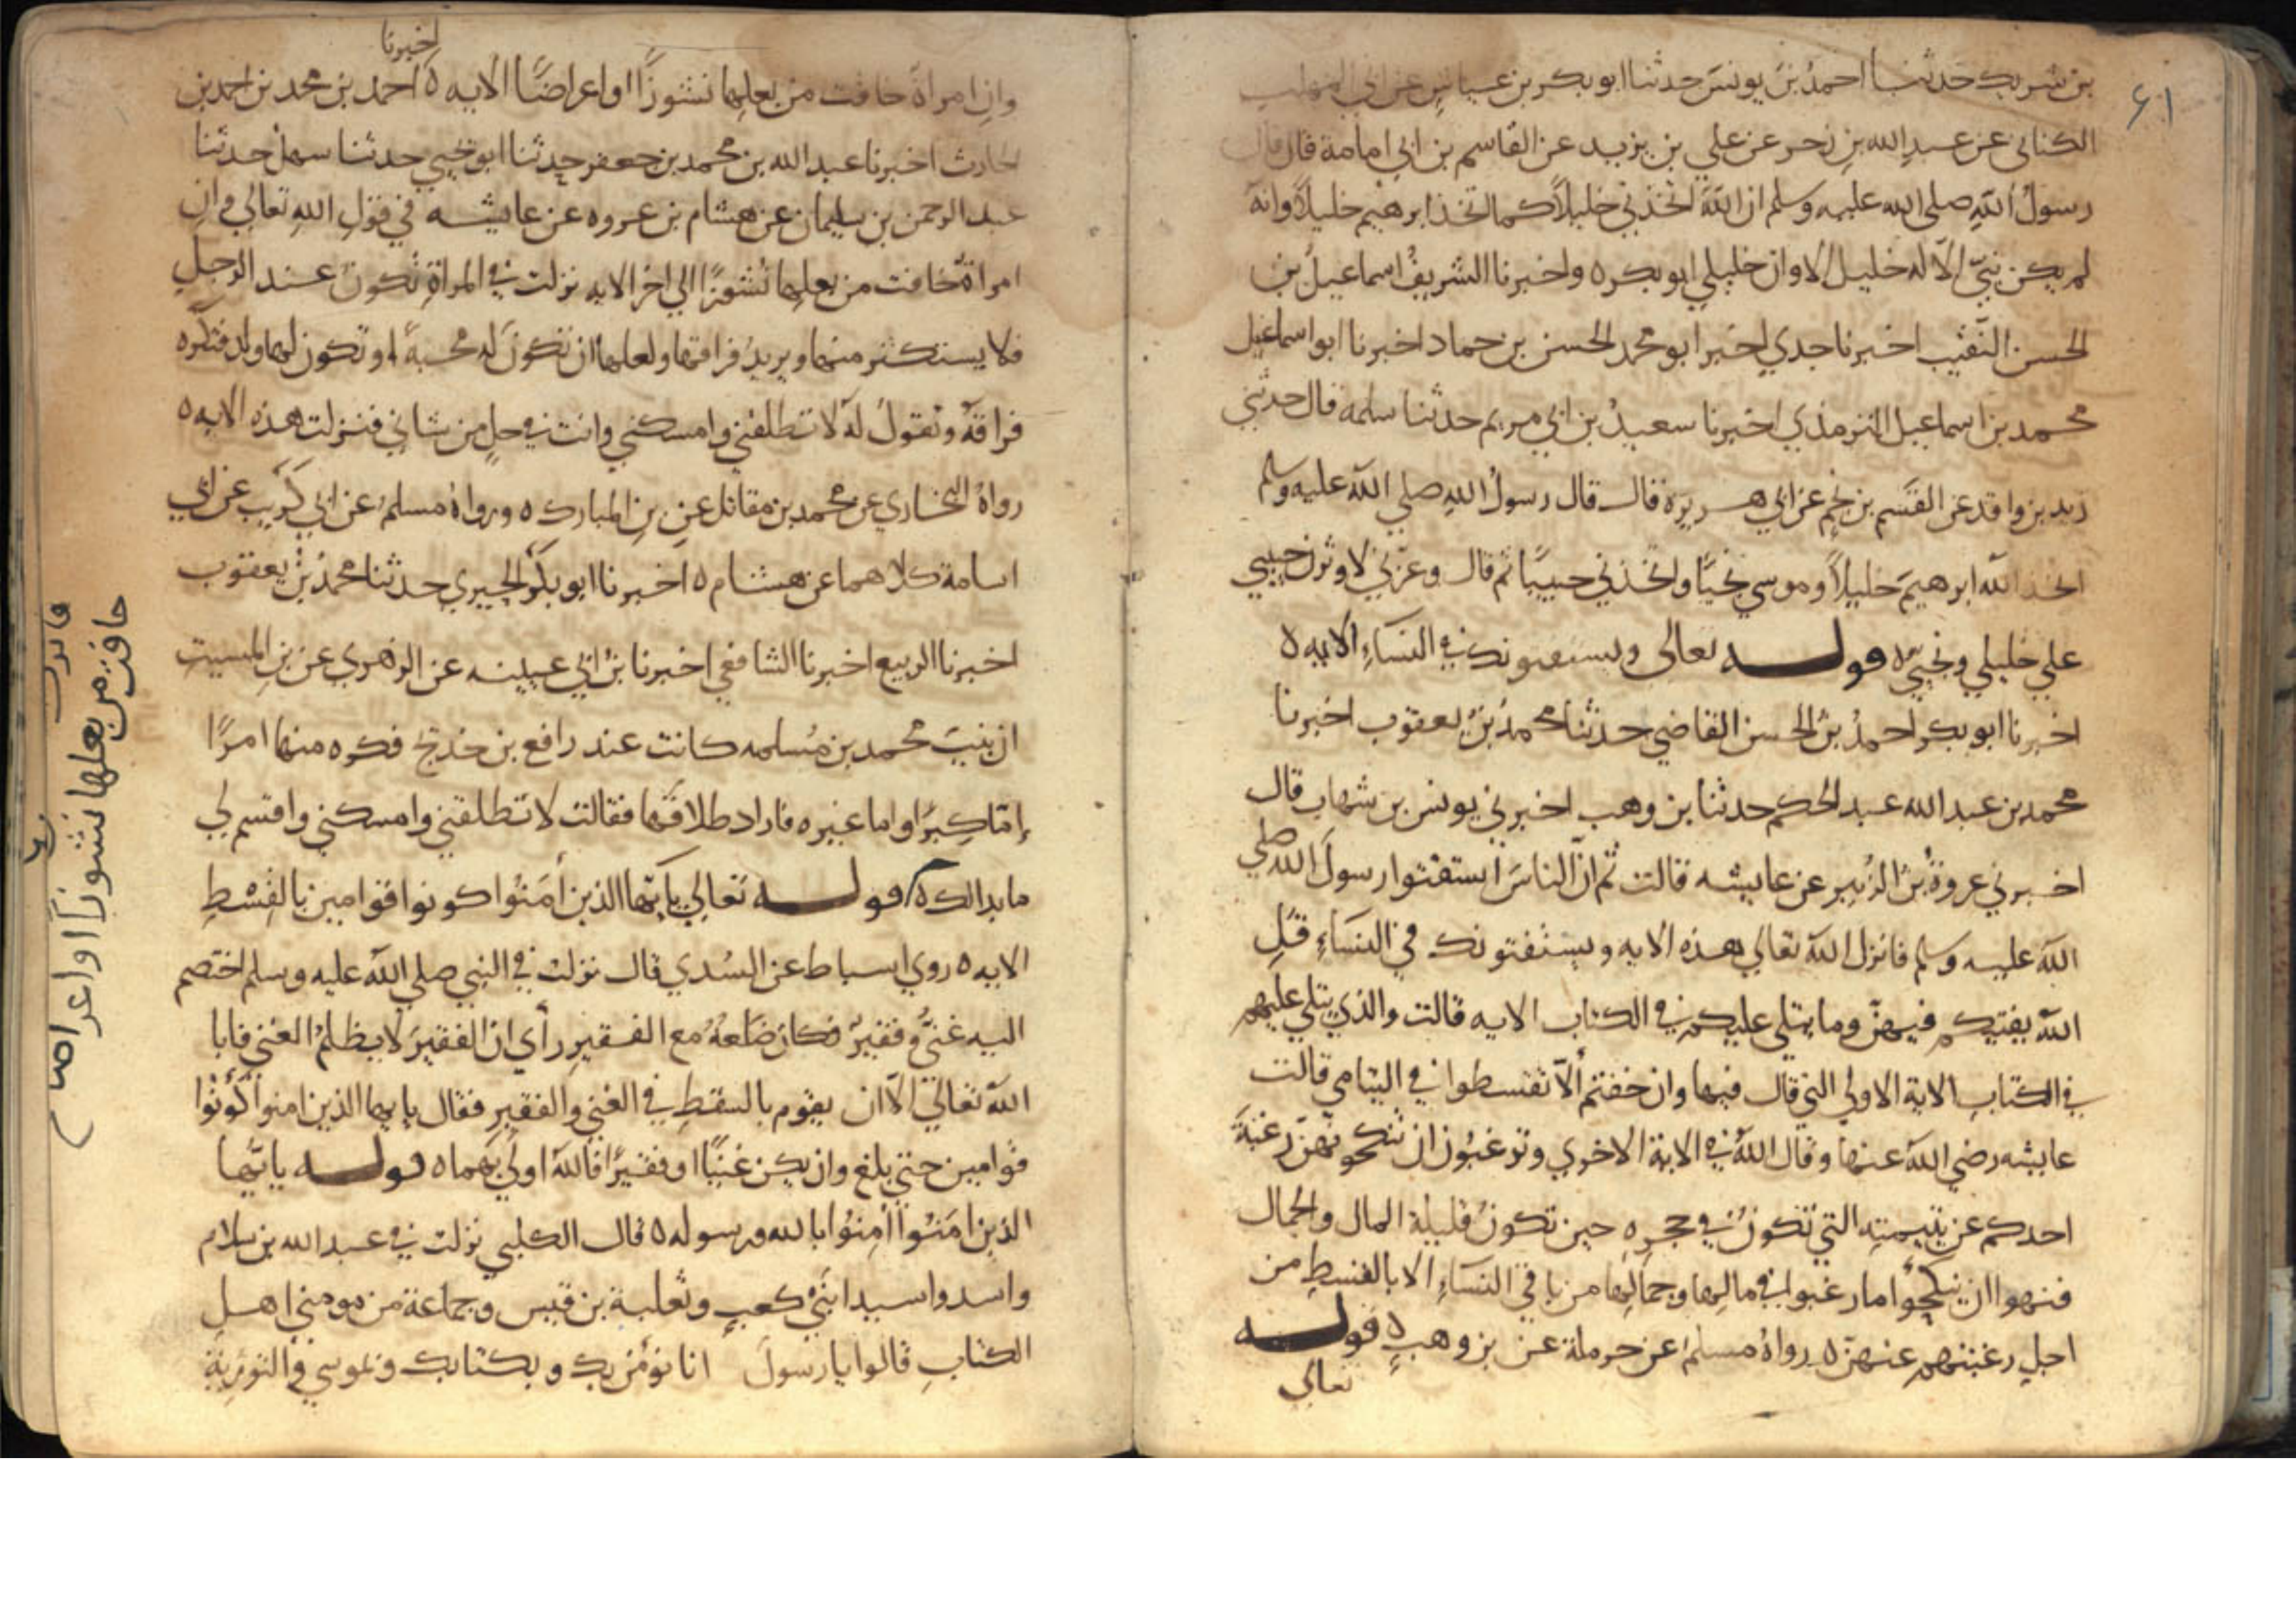 ٦١
بن شريك حدثنا احمدُ بنُ يونسَ حدثنا ابو بكر بن عياشٍ عن ابي المهلب
الكناني عن عبدِ الله بنِ زحر عن علي بن يزيد عن القاسم بن ابي امامة قال قال
رسولُ اللهِ صلى الله عليه وسلم ان اللهَ اتخذني خليلاً كما اتخذ ابرهيم خليلاً وانه
لم يكن نبيّ الا له خليل الا وان خليلي ابو بكر ه واخبرنا الشريفُ اسماعيلُ بن
الحسن النقيب اخبرنا جدي اخبر ابو محمد الحسن بن حماد اخبرنا ابو اسماعيل
محمد بن اسماعيل الترمذي اخبرنا سعيدُ بن ابي مريم حدثنا سلمه قال حدثني
زيد بن واقد عن القسم بن نجم عن ابي هريرة قال قال رسولُ اللهِ صلي الله عليه وسلم
اتخذ الله ابرهيمَ خليلاً وموسي نجيًا واتخذني حبيبًا ثم قال وعزتي لاوثرن حبيبي
علي خليلي ونجيّ ه قوله تعالى ويستفتونك في النساءِ الايه ه
اخبرنا ابو بكر احمدُ بنُ الحسن القاضي حدثنا محمدُ بنُ يعقوب اخبرنا
محمد بن عبد الله عبد الحكم حدثنا بن وهب اخبرني يونس بن شهاب قال
اخبرني عروةُ بنُ الزُبيرِ عن عايشه قالت ثم انّ الناسَ استفتوا رسولَ الله صلي
الله عليه وسلم فانزل الله تعالي هذه الايه ويستفتونك في النسَاءِ قلِ
اللهُ يفتيكم فيهنّ وما يتلي عليكم في الكتاب الايه قالت والذي يتلي عليهم
في الكتابِ الاية الاولي التي قال فيها وان خفتم ألّا تقسطوا في اليتامي قالت
عايشه رضي الله عنها وقال اللهُ في الاية الاخري وترغبُون ان تنكحوهنّ رغبةَ
احدكم عن يتيمتِه التي تكونُ في حجرِه حين تكونُ قليلة المال والجمال
فنهوا ان ينكحُوا ما رغبوا في مالِها وجمالِها من باقي النسَاءِ الا بالقسطِ من
اجلِ رغبتهم عنهنّ ه رواهُ مسلمُ عن حرملة عن بن وهبٍ ه قوله
تعالي
وانِ امراةٌ خافت من بعلِها نشوزًا او اعراضًا الايه ه اخبرنا احمد بن محمد بن احمد بن
الحارث اخبرنا عبد الله بن محمد بن جعفر حدثنا ابو يحيي حدثنا سهلُ حدثنا
عبد الرحمن بن سليمان عن هشام بن عروه عن عايشه في قولِ اللهِ تعالي وانِ
امراةٌ خافت من بعلِها نُشوزًا الي اخر الايه نزلت في المراةِ تكونُ عند الرجلِ
فلا يستكثر منها ويريدُ فراقها ولعلها ان تكونَ له محبةً او تكون لها ولد فتكره
فراقهُ وتقولُ لهُ لا تطلقني وامسكني وانت في حلٍ من شاني فنزلت هذه الايه ه
رواهُ البخاري عن محمد بن مقاتل عنِ بنِ المبارك ه ورواهُ مسلمُ عن ابي كُرَيب عن ابي
اسامة كلاهما عن هشام ه اخبرنا ابو بكر الحيري حدثنا محمدُ بنُ يعقوب
اخبرنا الربيع اخبرنا الشافعي اخبرنا بنُ ابي عيينه عن الزهري عن بنِ المسيبِ
ان بنتَ محمد بن مُسلمه كانت عند رافع بن خديج فكره منها امرًا
إمّا كِبرًا واما غيره فاراد طلاقَها فقالت لا تطلقني وامسكني واقسم لي
ما بدا لك ه قوله تعالي يا ايّها الذين أمَنُوا كونوا قوامين بالقِسْطِ
الايه ه روي اسباط عن السُدي قال نزلت في النبي صلي الله عليه وسلم اختصم
اليه غنيٌّ وفقيرٌ فكان ضَلعهُ مع الفقيرِ رأي ان الفقيرَ لا يظلمُ الغني فابا
اللهُ تعالي الا ان يقوم بالسقطِ في الغني والفقيرِ فقال يا ايها الذين امنوا كُونُوا
قوامين حتي بلغ وان يكن غنيًا او فقيرًا فاللهُ اولي بهما ه قوله يا ايّها
الذين امَنُوا أمِنُوا بالله ورسوله ه قال الكلبي نزلت في عبد الله بن سلام
واسد واسيد ابنَيْ كعبٍ وثعلبة بن قيس وجماعة من مومني اهلِ
الكتابِ قالوا يا رسولَ انا نؤمن بك وبكتابك وبموسي والتوريةِ
خافت من بعلها نشوزًا او اعراضا